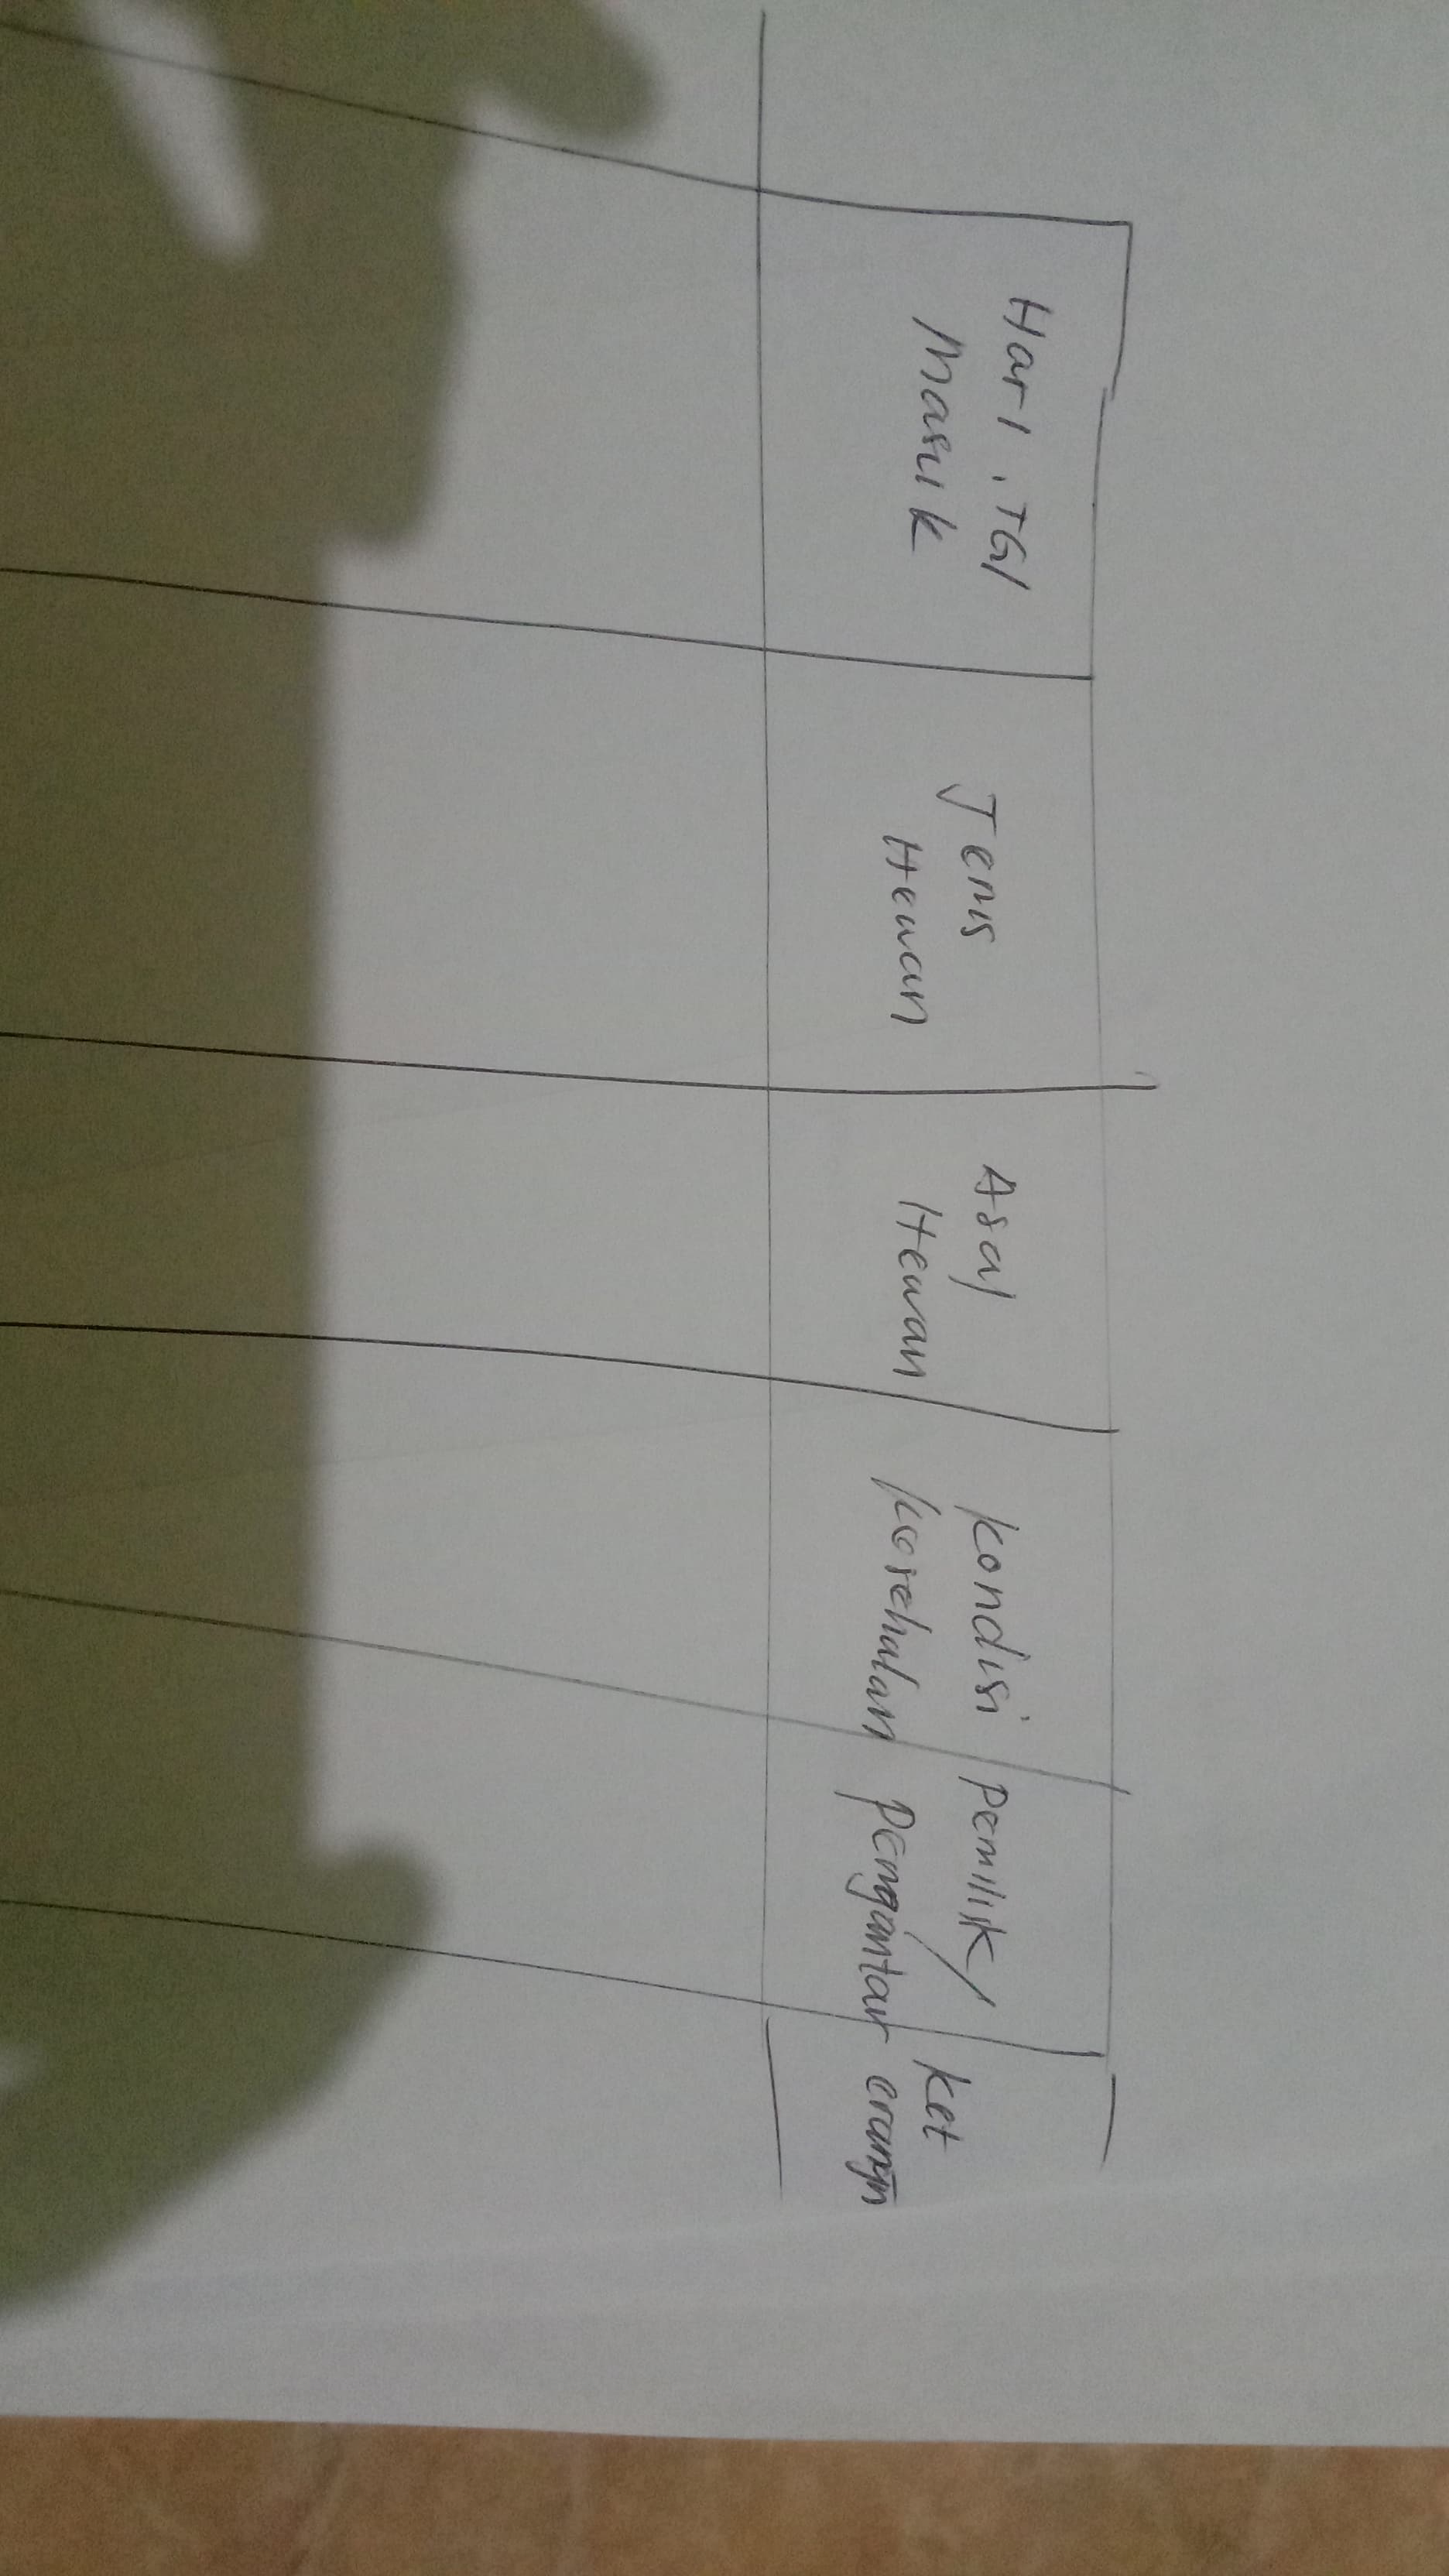 Hari, Tgl
Masuk
Jenis
Hewan
Asal
Hewan
Kondisi
Kesehatan
Pemilik/
Pengantar
Ket